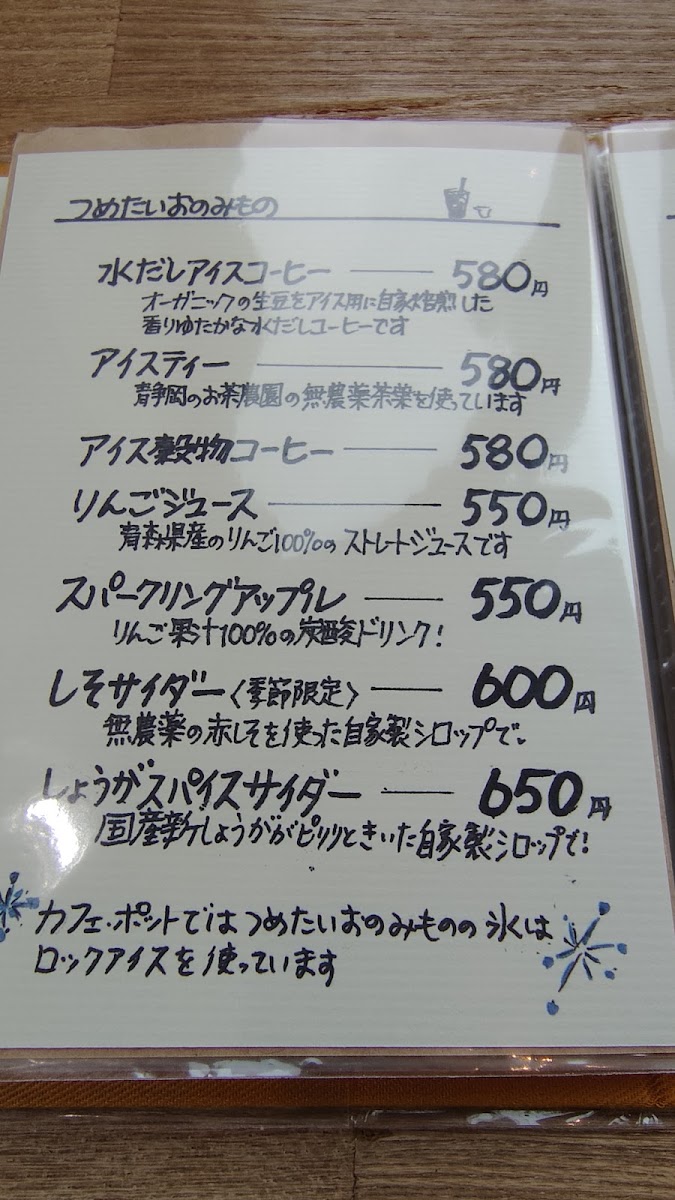 つめたいおのみもの
水だしアイスコーヒー 580円
オーガニックの生豆をアイス用に自家焙煎した
香りゆたかな水だしコーヒーです
アイスティー 580円
静岡のお茶農園の無農薬茶葉を使っています
アイス穀物コーヒー 580円
りんごジュース 550円
青森県産のりんご100%のストレートジュースです
スパークリングアップル 550円
りんご果汁100%の炭酸ドリンク!
しそサイダー〈季節限定〉 600円
無農薬の赤しそを使った自家製シロップで。
しょうがスパイスサイダー 650円
国産新しょうががピリリときいた自家製シロップで!
カフェ・ポットではつめたいおのみものの氷は
ロックアイスを使っています